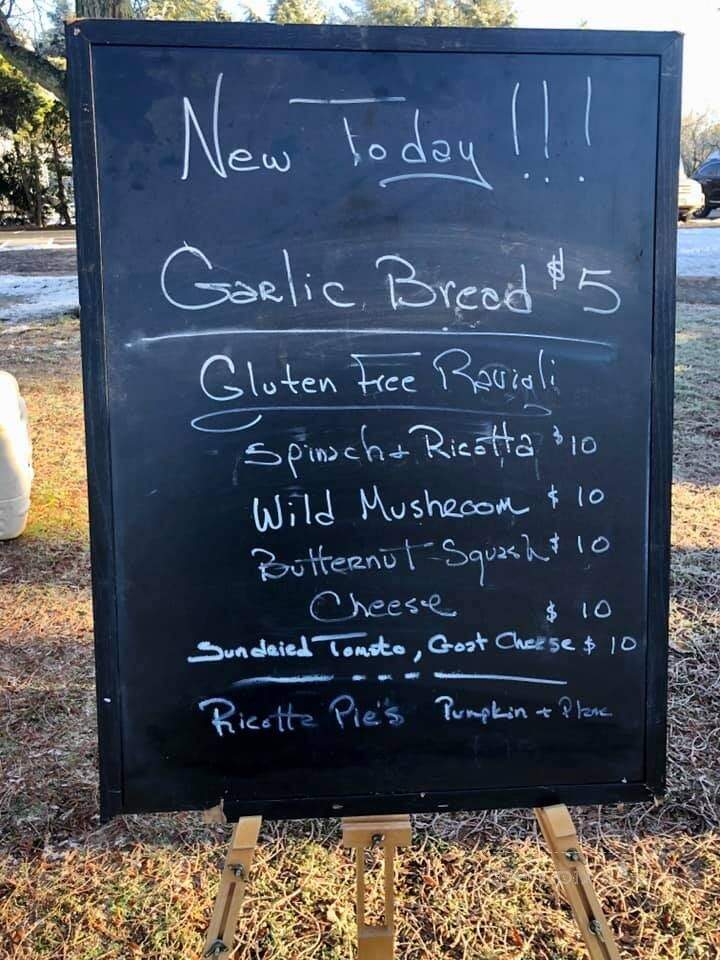 New Today !!!
Garlic Bread $5
Gluten Free Ravioli
Spinach + Ricotta $10
Wild Mushroom $10
Butternut Squash $10
Cheese $10
Sundried Tomato, Goat Cheese $10
Ricotta Pie's Pumpkin +